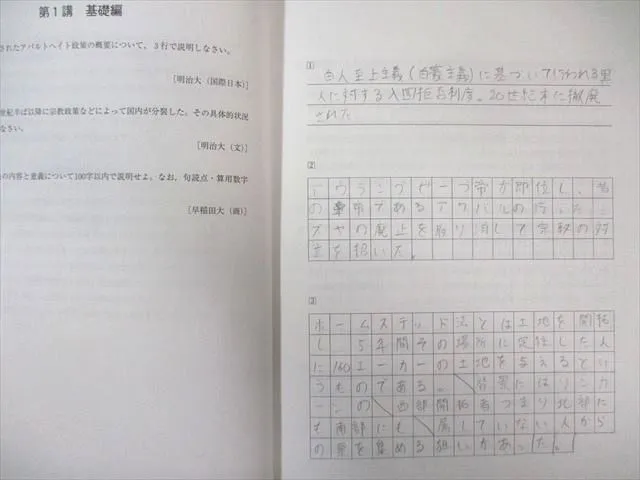 第1講 基礎編
されたアパルトヘイト政策の概要について，3行で説明しなさい。
[明治大（国際日本）]
世紀半ば以降に宗教政策などによって国内が分裂した。その具体的状況
なさい。
[明治大（文）]
の内容と意義について100字以内で説明せよ。なお，句読点・算用数字
[早稲田大（商）]
1
白人至上主義(白豪主義)に基づいて行われる黒
人に対する入国拒否制度。20世紀末に撤廃
された
2
アウラングゼーブ帝が即位し、
の 帝であるアクバルの行った
ズヤの廃止を取り消して宗教の対
立を招いた。
3
ホームステッド法とは土地を開拓
し、5年間その場所に定住した人
に160エーカーの土地を与えるとい
うものである。背景にはリンカ
ーンの西部開拓者つまり北部に
も南部にも属していない人から
の票を集める狙いがあった。